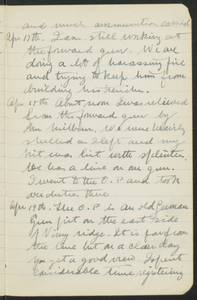 and more ammunition carried
Apr 17th. I am still working at
the forward gun. We are
doing a lot of harassing fire
and trying to keep him from
building his
Apr 18th about noon I was relieved
from the forward gun by
Mr We were heavily
shelled as I left and my
hit with splinter.
We had a man on one gun.
I went to the O.P. and took
over duties there
Apr 19th. The O.P. is an old German
Gun pit on the east side
of Vimy ridge. It is far from
the line but on a clear day
you get a good view. I spent
considerable time